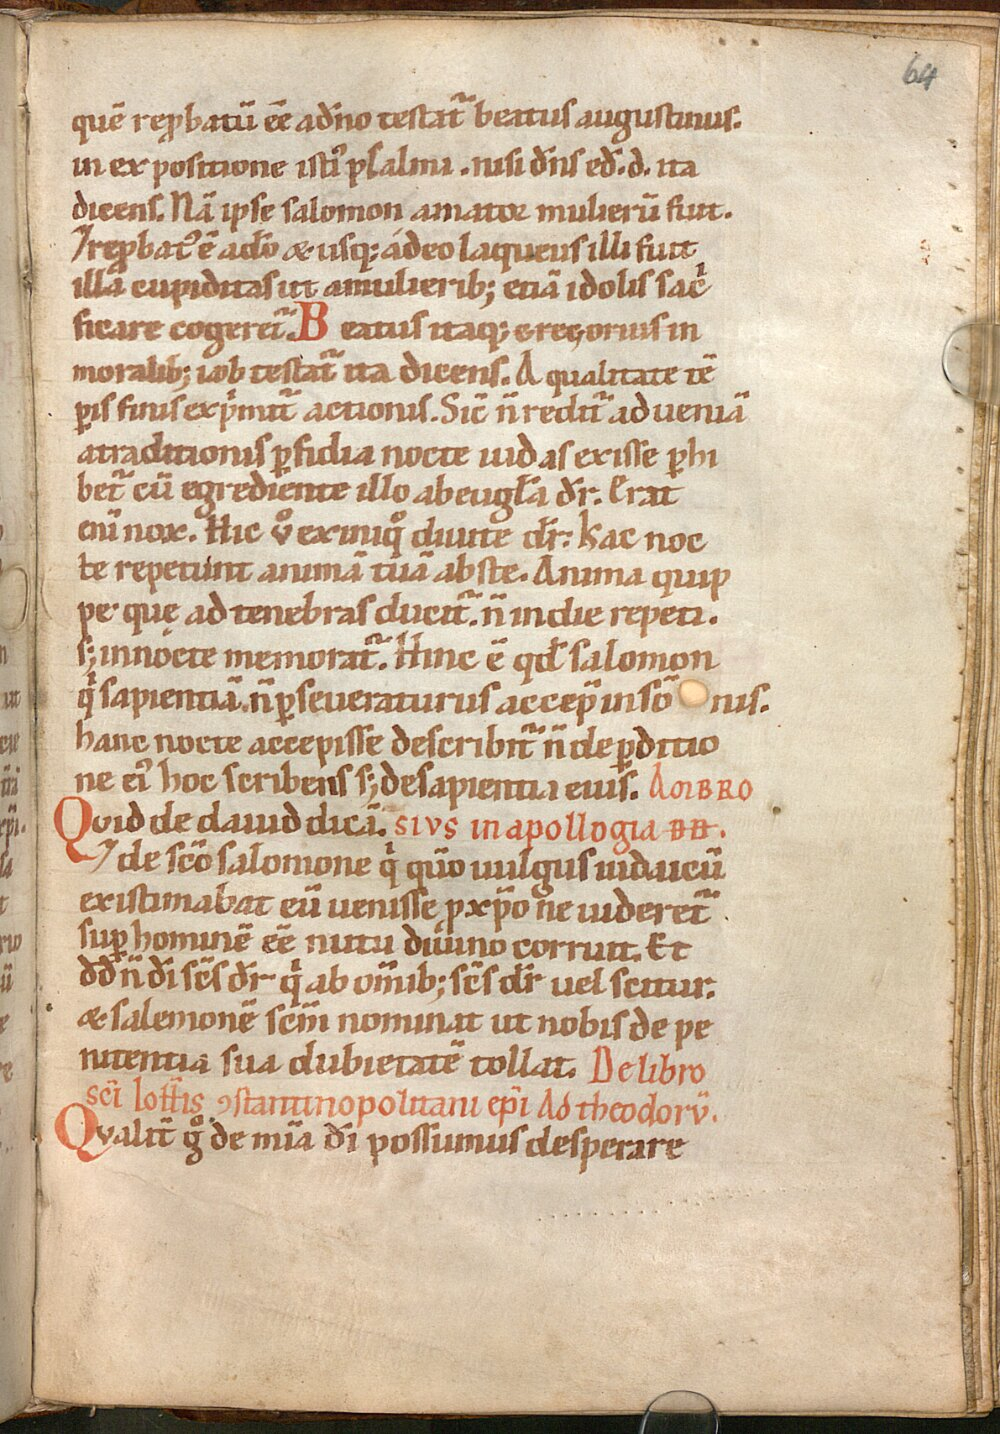 64
quē rep̱batū eē adn̄o testat᷑ beatus augustinus.
in expositione isti᷒ psalmi. nisi dn̄s ed̄. d. ita
dicens. Nā ipse salomon amator mulierū fuit.
⁊ rep̱bat᷒ ē ad̄o & usq; ádeo laqueus illi fuit
illa cupiditas ut amulierib; etiā idolis sacͥ
ficare cogeret᷑. Beatus itaq; gregorius in
moralib; iob testat᷑ ita dicens. A qualitate tē
ꝑis finis expͥmit᷑ actionis. Sic̄ n̄ redit᷑ ad ueniā
atraditionis ꝑfidia nocte iudas exisse ꝑhi
bet᷑ cū egrediente illo ab eugl̄a dr̄. Erat
eni̅ nox. Hic ůͦ ex iniqͦ diuite dr̄: hac noc
te repetunt animā tuā abste. Anima quip
pe quę ad tenebras ducit᷑. n̄ in die repeti.
s; innocte memorat᷑. Hinc ē qd̄ salomon
qͥ sapientiā n̄ ꝑseueraturus accep̄ in sō nis.
hanc nocte accepisse describit᷑ n̄ de ꝑditio
ne ei᷒ hoc scribens s; desapientia eius. AMBRO
Quid de dauid dicā. SIVS in apollogia DD.
⁊ de scō salomone qͥ quō uulgus iudaicū
existimabat eū uenisse ꝓ xp̄o ne uideret᷑
suꝑ hominē eē nutu diuino corruit. Et
dd̄ n̄ di̅ sc̄s dr̄ qͥ ab om̄ib; sc̄s dr̄ uel scitur.
& salemonē scm̄ nominat ut nobis de pe
nitentia sua dubietatē tollat. De libro
sc̄i Ioh̄is ꝯstantinopolitani ep̄i Ad theodorū.
Qualit᷑ gͦ de mi̅a di̅ possumus desperare